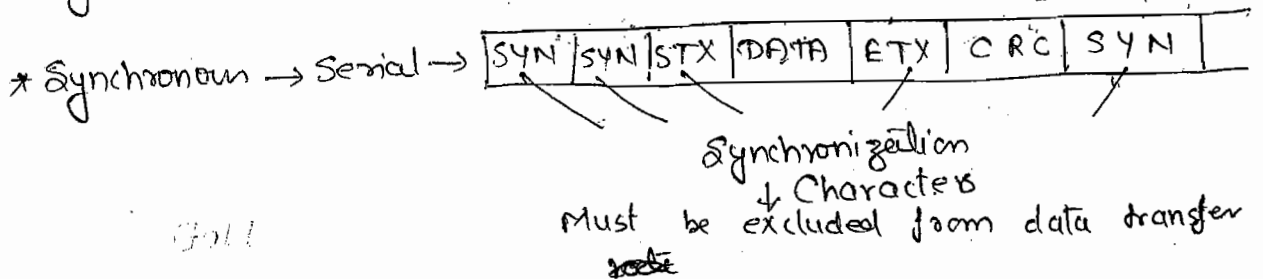 * Synchronous → Serial → |SYN|SYN|STX|DATA|ETX|CRC|SYN|
Synchronization
↓ Characters
Must be excluded from data transfer